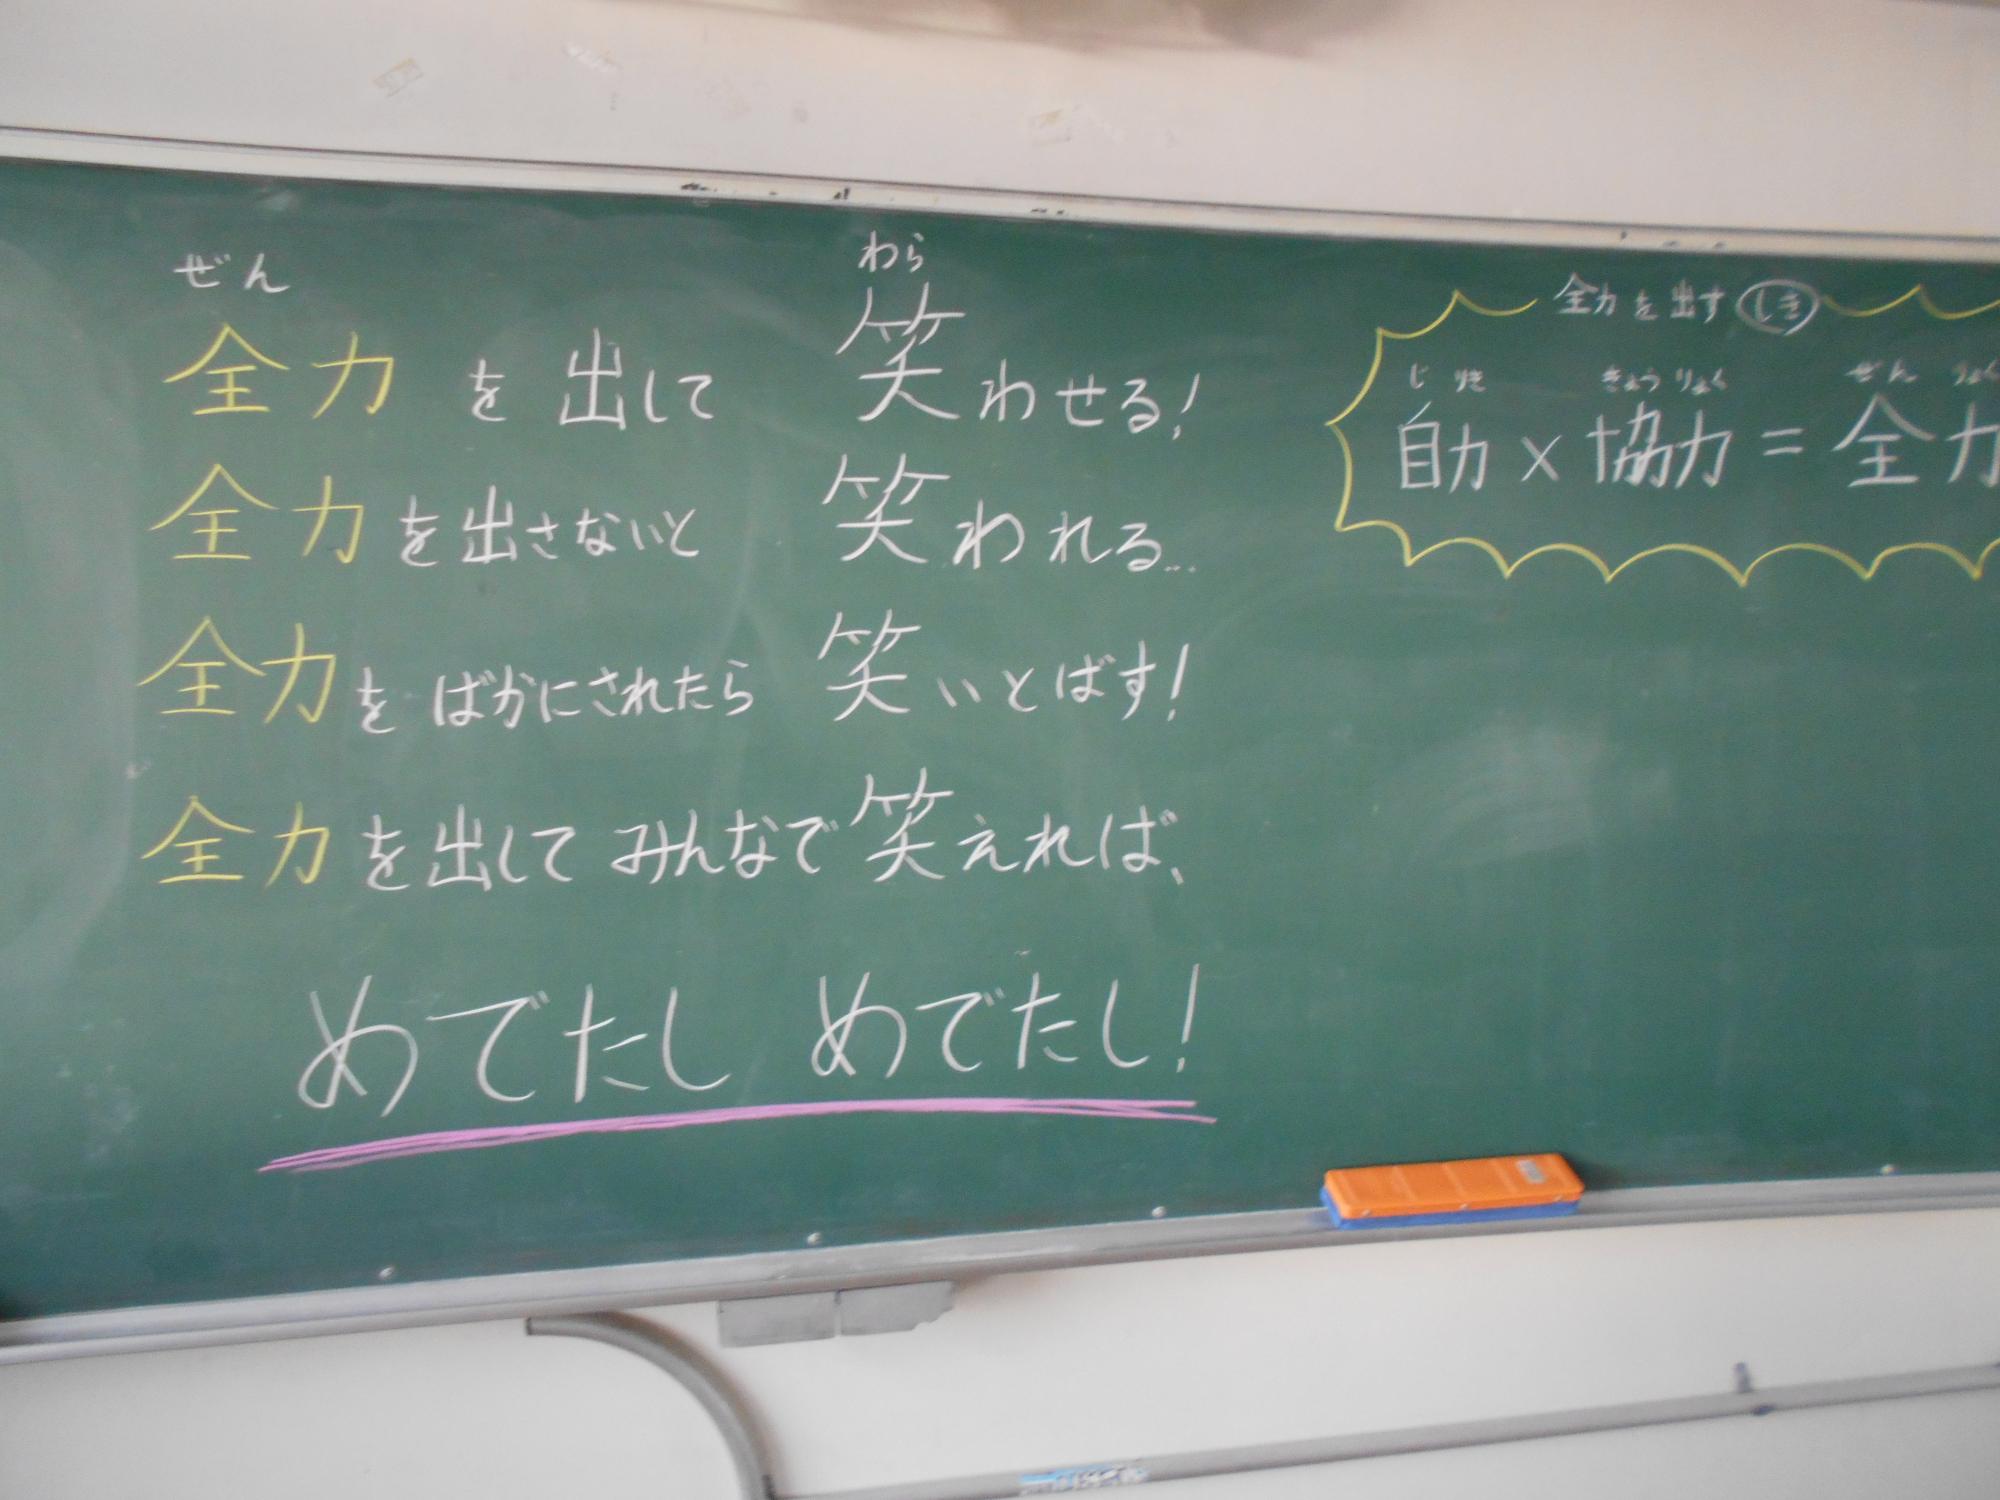 ぜん わら
全力を出して 笑わせる!
全力を出さないと 笑われる…
全力をばかにされたら 笑いとばす!
全力を出してみんなで笑えれば、
めでたし めでたし!
全力を出す しき
じ りき きょうりょく ぜん りょく
自力×協力=全力